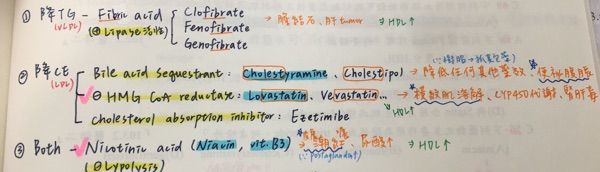 ① 降TG - Fibric acid { Clofibrate → 膽結石、肝tumor ∋HDL↑
(VLDL) (⊕ Lipase活性) Fenofibrate
Genofibrate
(∵樹脂→
② 降CE { Bile acid sequestrant: Cholestyramine, Cholestipol → 降低任何其他藥效、便祕腹脹
(LDL) ⊖ HMG CoA reductase: Lovastatin, Vevastatin... → 橫紋肌溶解、CYP450代謝、肾肝毒
HDL↑
cholesterol absorption inhibitor: Ezetimibe
③ Both - Nicotinic acid (Niacin, vit. B3) → 潮紅、尿酸↑ ∋ HDL↑
(⊖ Lypolysis) (∵ postaglandin↑)